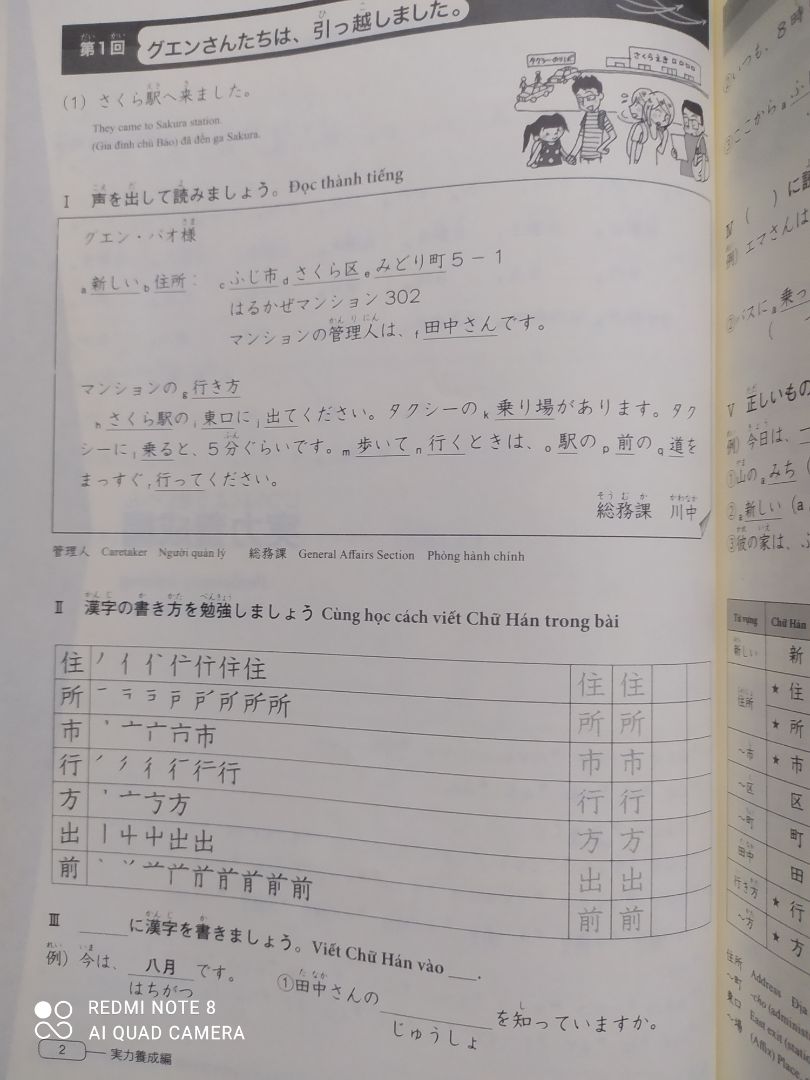 第1回 グエンさんたちは、引っ越しました。
(1) さくら駅へ来ました。
They came to Sakura station.
(Gia đình chú Bảo) đã đến ga Sakura.
タクシーのりば
さくらえき
Ⅰ 声を出して読みましょう。Đọc thành tiếng
グエン・バオ様
a新しい b住所: cふじ市 dさくら区 eみどり町 5-1
はるかぜマンション 302
マンションの管理人は、f田中さんです。
マンションの g行き方
hさくら駅の i東口に j出てください。タクシーの k乗り場があります。タク
シーに l乗ると、5分ぐらいです。m歩いて n行くときは、o駅の p前の q道を
まっすぐ r行ってください。
総務課 川中
管理人 Caretaker Người quản lý 総務課 General Affairs Section Phòng hành chính
Ⅱ 漢字の書き方を勉強しましょう Cùng học cách viết Chữ Hán trong bài
住 住 住 住
所 所 所 所
市 市 市 市
行 行 行 行
方 方 方 方
出 出 出 出
前 前 前 前
Ⅲ ____に漢字を書きましょう。Viết Chữ Hán vào ___.
例) 今は、八月です。
はちがつ
①田中さんの________を知っていますか。
じゅうしょ
2 実力養成編
REDMI NOTE 8
AI QUAD CAMERA
いつも、8時
ここから a
Ⅳ ( ) に
例) エマさんは
②バスに a乗っ
Ⅴ 正しいもの
例) 今日は、
①山の aみち
②a新しい (a
③彼の家は、
Từ vựng Chữ Hán
新しい 新
住所 ★住
★所
~市 ★市
~区 区
~町 町
田中 田
行き方 ★行
~方 ★方
住所 Address
~町 -cho
東口 East exit
~場 (Affix) Place